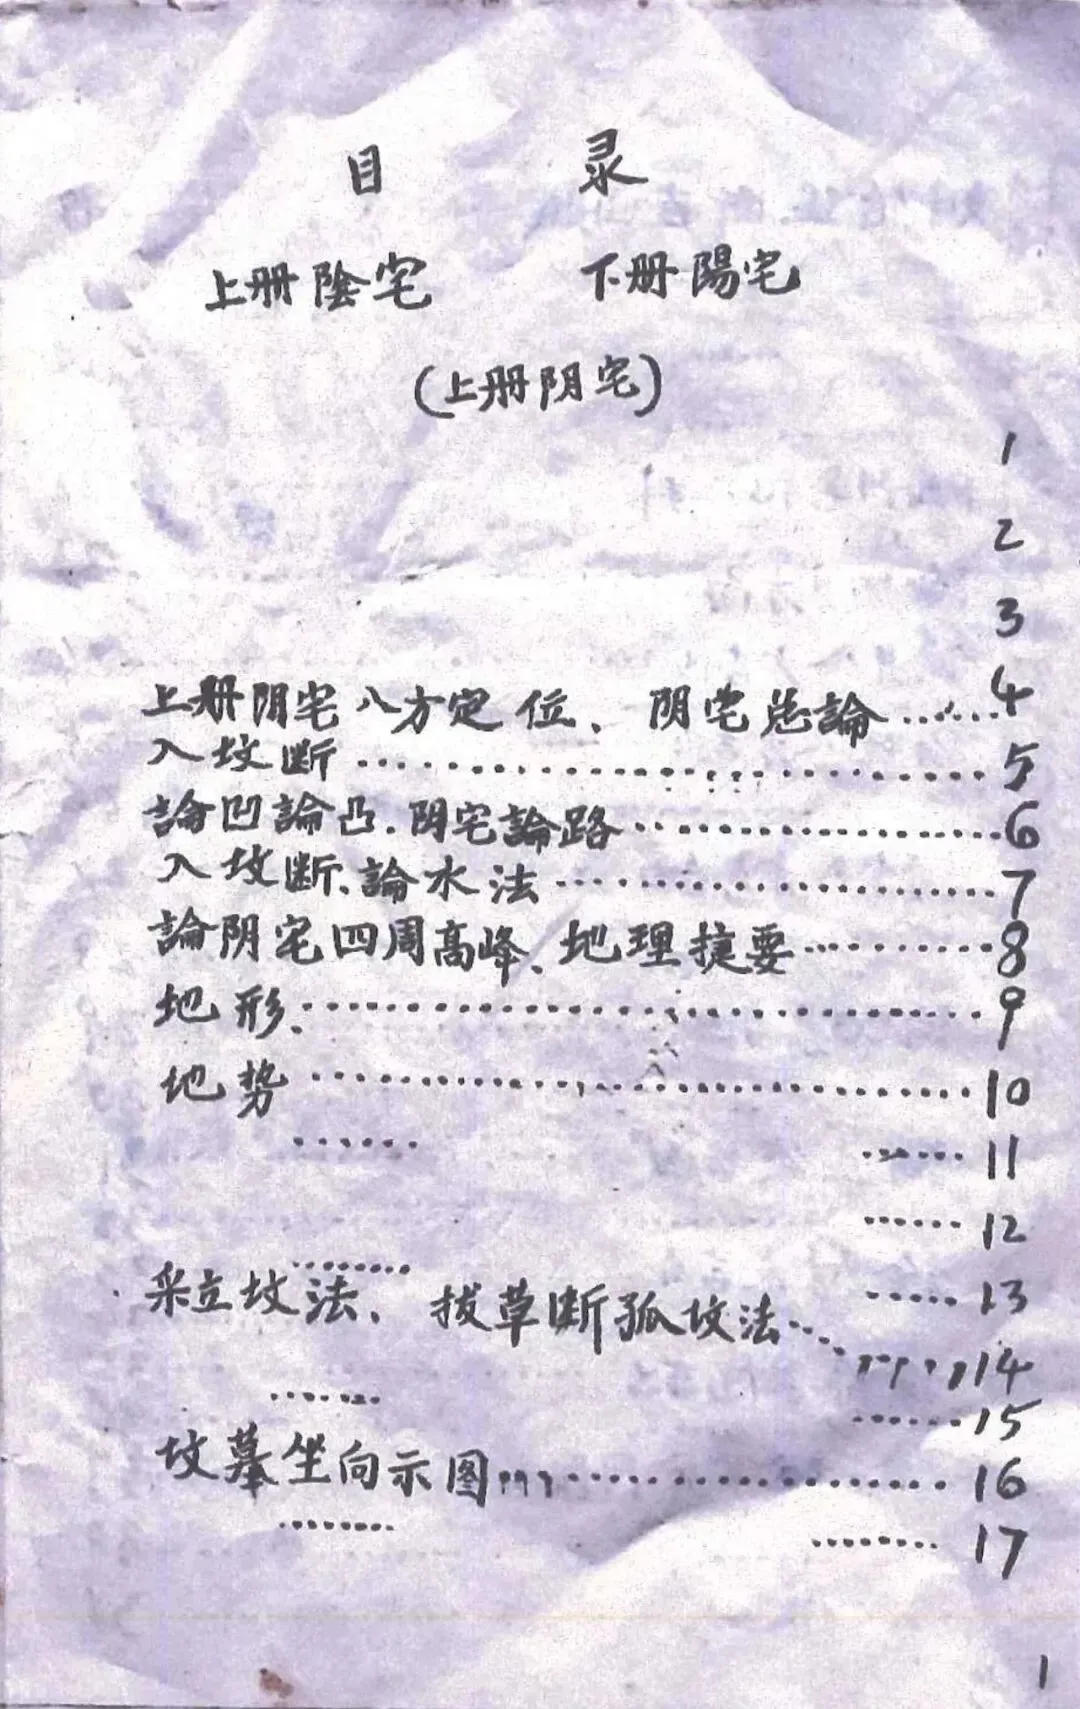 目 录
上册陰宅 下册陽宅
(上册阴宅)
1
2
3
上册阴宅八方定位、阴宅总論......4
入坟断..............................5
論凹論凸.阴宅論路..................6
入坟断、論水法......................7
論阴宅四周高峰、地理捷要..........8
地形、..............................9
地势..............................10
....... ......11
......12
....... .....13
采立坟法、拔草断孤坟法..........14
....... ......15
坟墓坐向示图....................16
........ .......17
1